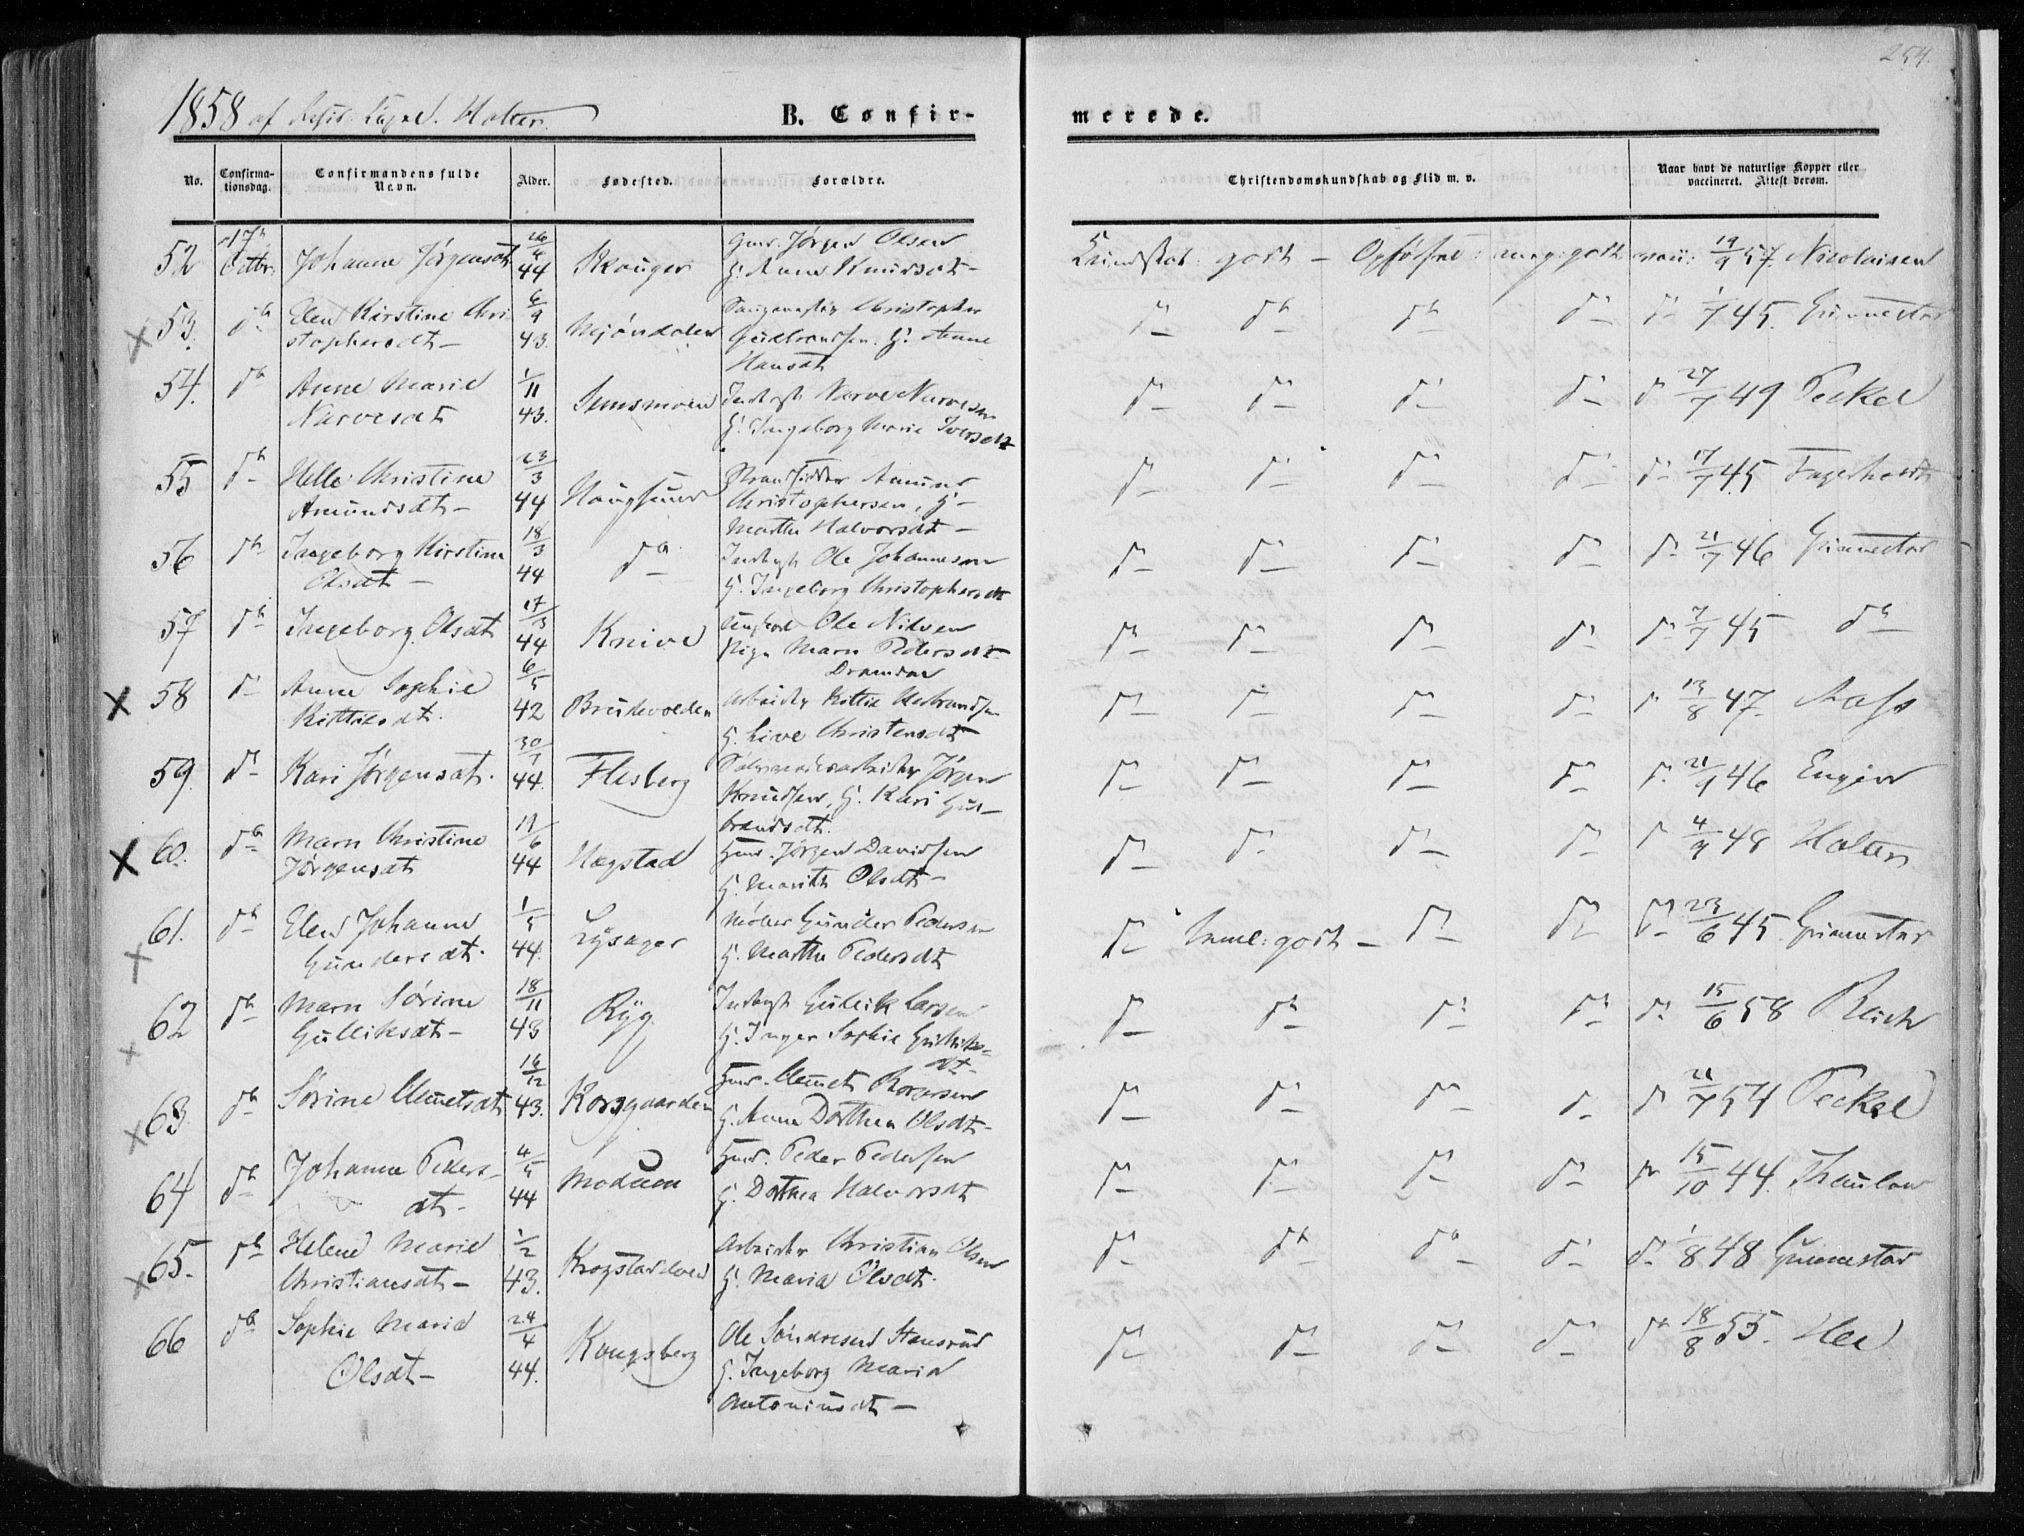 254.
1858 af Holter.
B. Confir-
merede.
No.
Confirma-
tionsdag.
Confirmandens fulde
Navn.
Alder.
Fødested.
Forældre.
Christendomskundskab og Flid m. v.
Naar havt de naturlige Kopper eller
vaccineret. Attest derom.
52 17de Octbr. Johanne Jørgensdt 26/4 44 Skouger Gmd. Jørgen Olsen
H. Anne Knudsdt- Kundskab: godt - Opførsel: meg: godt vacc: 19/9 57. Nicolaisen
53. do Elen Kirstine Chri
stophersdt- 6/9 43. Mjøndalen Christopher
Gulbrandsen. H. Anne
Hansdt do do do do do 1/7 45. Gunnestad
54. do Anne Marie
Narvesdt 1/11 43. Narve Narvesen
H. Ingeborg Marie Iversdt do do do do do 27/7 49 Peckel
55 do Helle Christine
Amundsdt- 23/3 44 Hougsund Strandsidder Amund
Christophersen, H-
Marthe Halvorsdt- do do do do do 17/7 45
56 do Ingeborg Kirstine
Olsdt- 18/3 44 do Inderst Ole Johannesen
H. Ingeborg Christophersdt do do do do do 21/7 46 Gunnestad
57 do Ingeborg Olsdt 17/3 44 Knive Ungkarl Ole Nilsen
Pige Maren Pedersdt
Drammen do do do do do 7/7 45 do
58 do Anne Sophie
Kittilsdt. 6/5 42 Brudevolden Arbeider Kittil
H. Live Christensdt- do do do do do 13/8 47.
59. do Kari Jørgensdt. 30/7 44. Flesberg Jørgen
Knudsen, H. Kari Gul-
brandsdt. do do do do do 21/9 46
60. do Maren Christine
Jørgensdt 11/6 44 Hagstad Hmd. Jørgen Davidsen
H. Marith Olsdt- do do do do do 4/9 48 Holter
61. do Elen Johanne
Gundersdt. 1/5 44. Lysager Møller Gunder Pedersen
H. Marthe Pedersdt do Teml: godt - do do do 23/6 45. Gunnestad
62 do Maren Sørine
Gulliksdt- 18/11 43 Ryg Inderst Gullik Larsen
H. Inger Sophie Gulliks-
dt- do do do do do 15/6 58
63. do Sørine Clemetsdt 16/12 43. Korsgaarden Hmd. Clemet
H. Anne Dorthea Olsdt- do do do do do 21/7 54 Peckel
64 do Johanne Peders-
dt- 4/5 44 Modum Hmd. Peder Pedersen
H. Dorthea Halvorsdt do do do do do 15/10 44. Thaulow
65. do Helene Marie
Christiansdt- 1/2 43. Arbeider Christian Olsen
H. Maria Olsdt. do do do do do 1/8 48 Gunnestad
66 do Sophie Marie
Olsdt- 24/4 44. Kongsberg Ole
H. Ingeborg Maria
Antoniusdt- do do do do do 18/8 55.